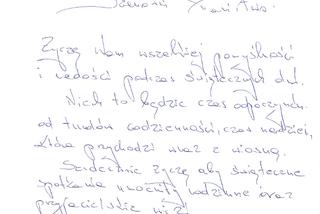 Szanowni Państwo.
Życzę Wam wszelkiej pomyślności
i radości podczas świątecznych dni.
Niech to będzie czas odpoczynku
od trudów codzienności, czas nadziei,
która przychodzi wraz z wiosną.
Serdecznie życzę aby świąteczne
spotkania umocniły rodzinne oraz
przyjacielskie więzi